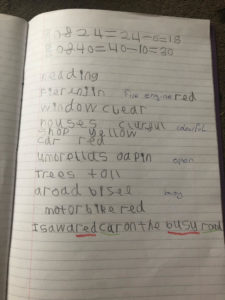 24=24-6=18
40=40-10=30
reading
fire engine red
window clear
houses colourful
shop yellow
car red
umbrellas oapin open
trees tall
a road bisee busy
motorbike red
I saw a red car on the busy road